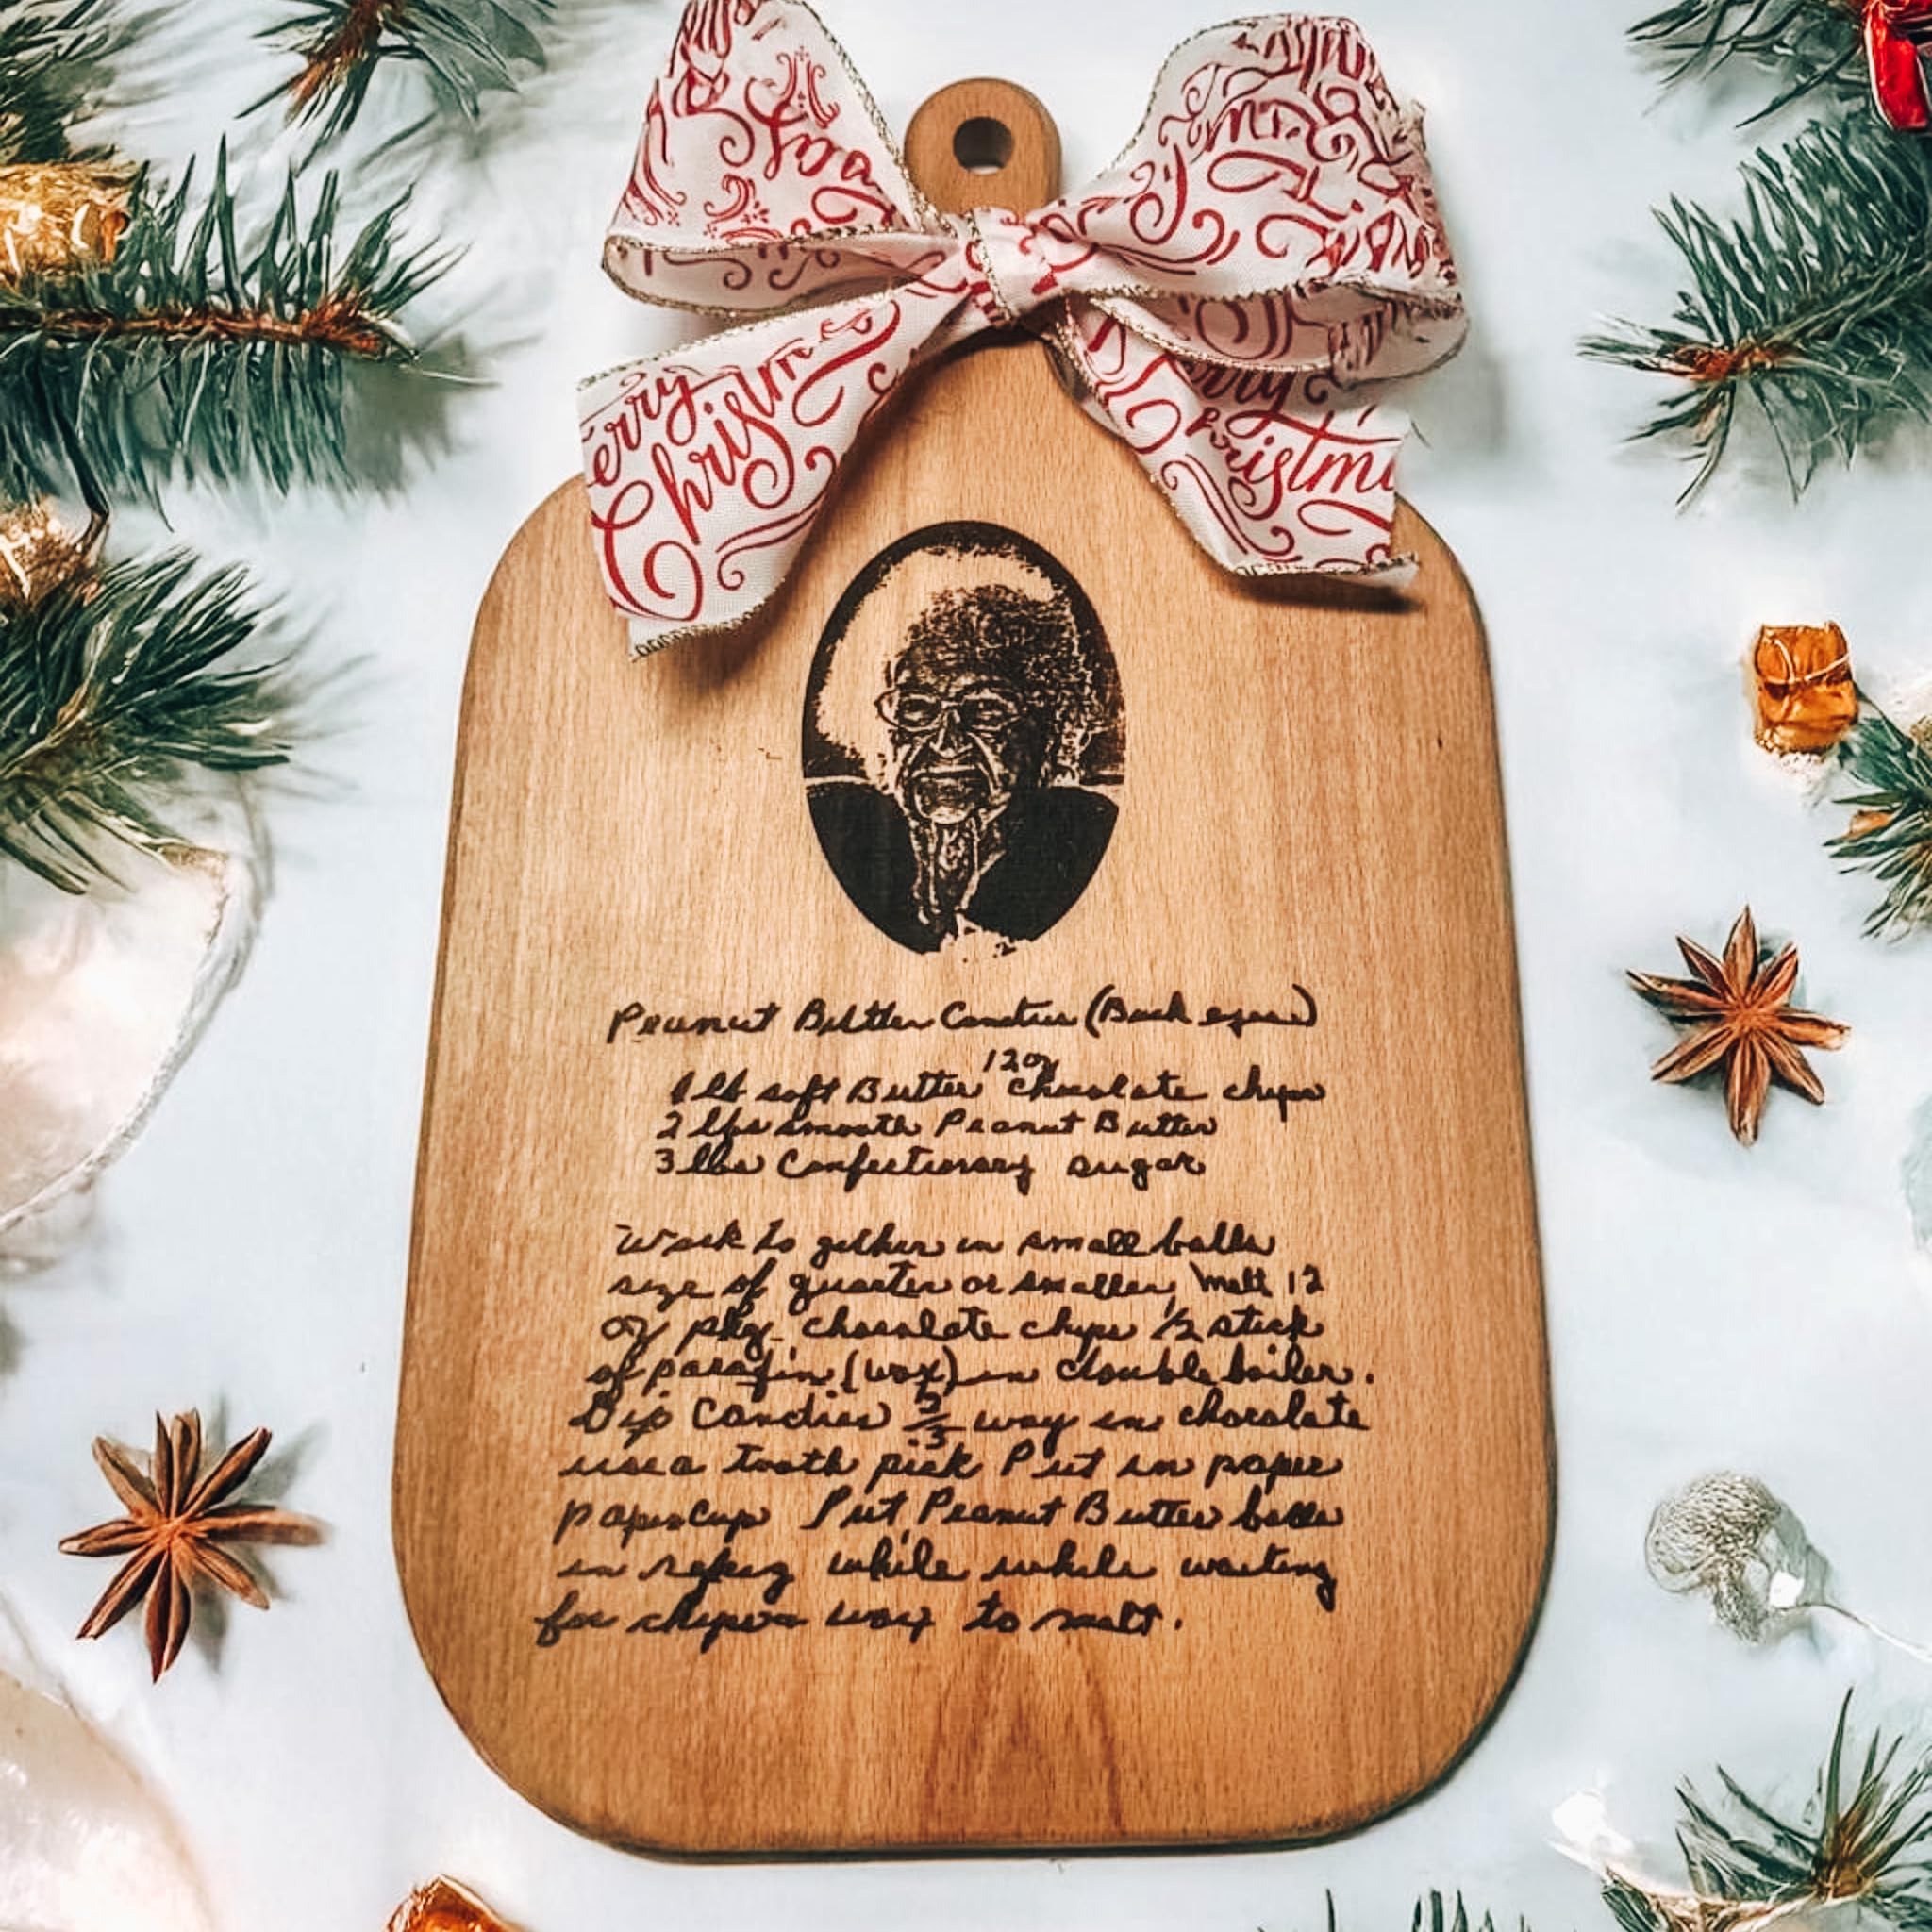 Merry
Christmas
Merry
Christmas
Peanut Butter Candies (Buck eyes)
12 oz
1 lb soft Butter chocolate chips
2 lbs smooth Peanut Butter
3 lbs Confectionary sugar
Work to gether in small balls
size of quarter or smaller, Melt 12
oz pkg. chocolate chips 1/2 stick
of parafin (wax) in double boiler.
Dip Candies 2/3 way in chocolate
use a tooth pick Put in paper
paper cup Put Peanut Butter balls
in refrig while while waiting
for chips wax to melt.